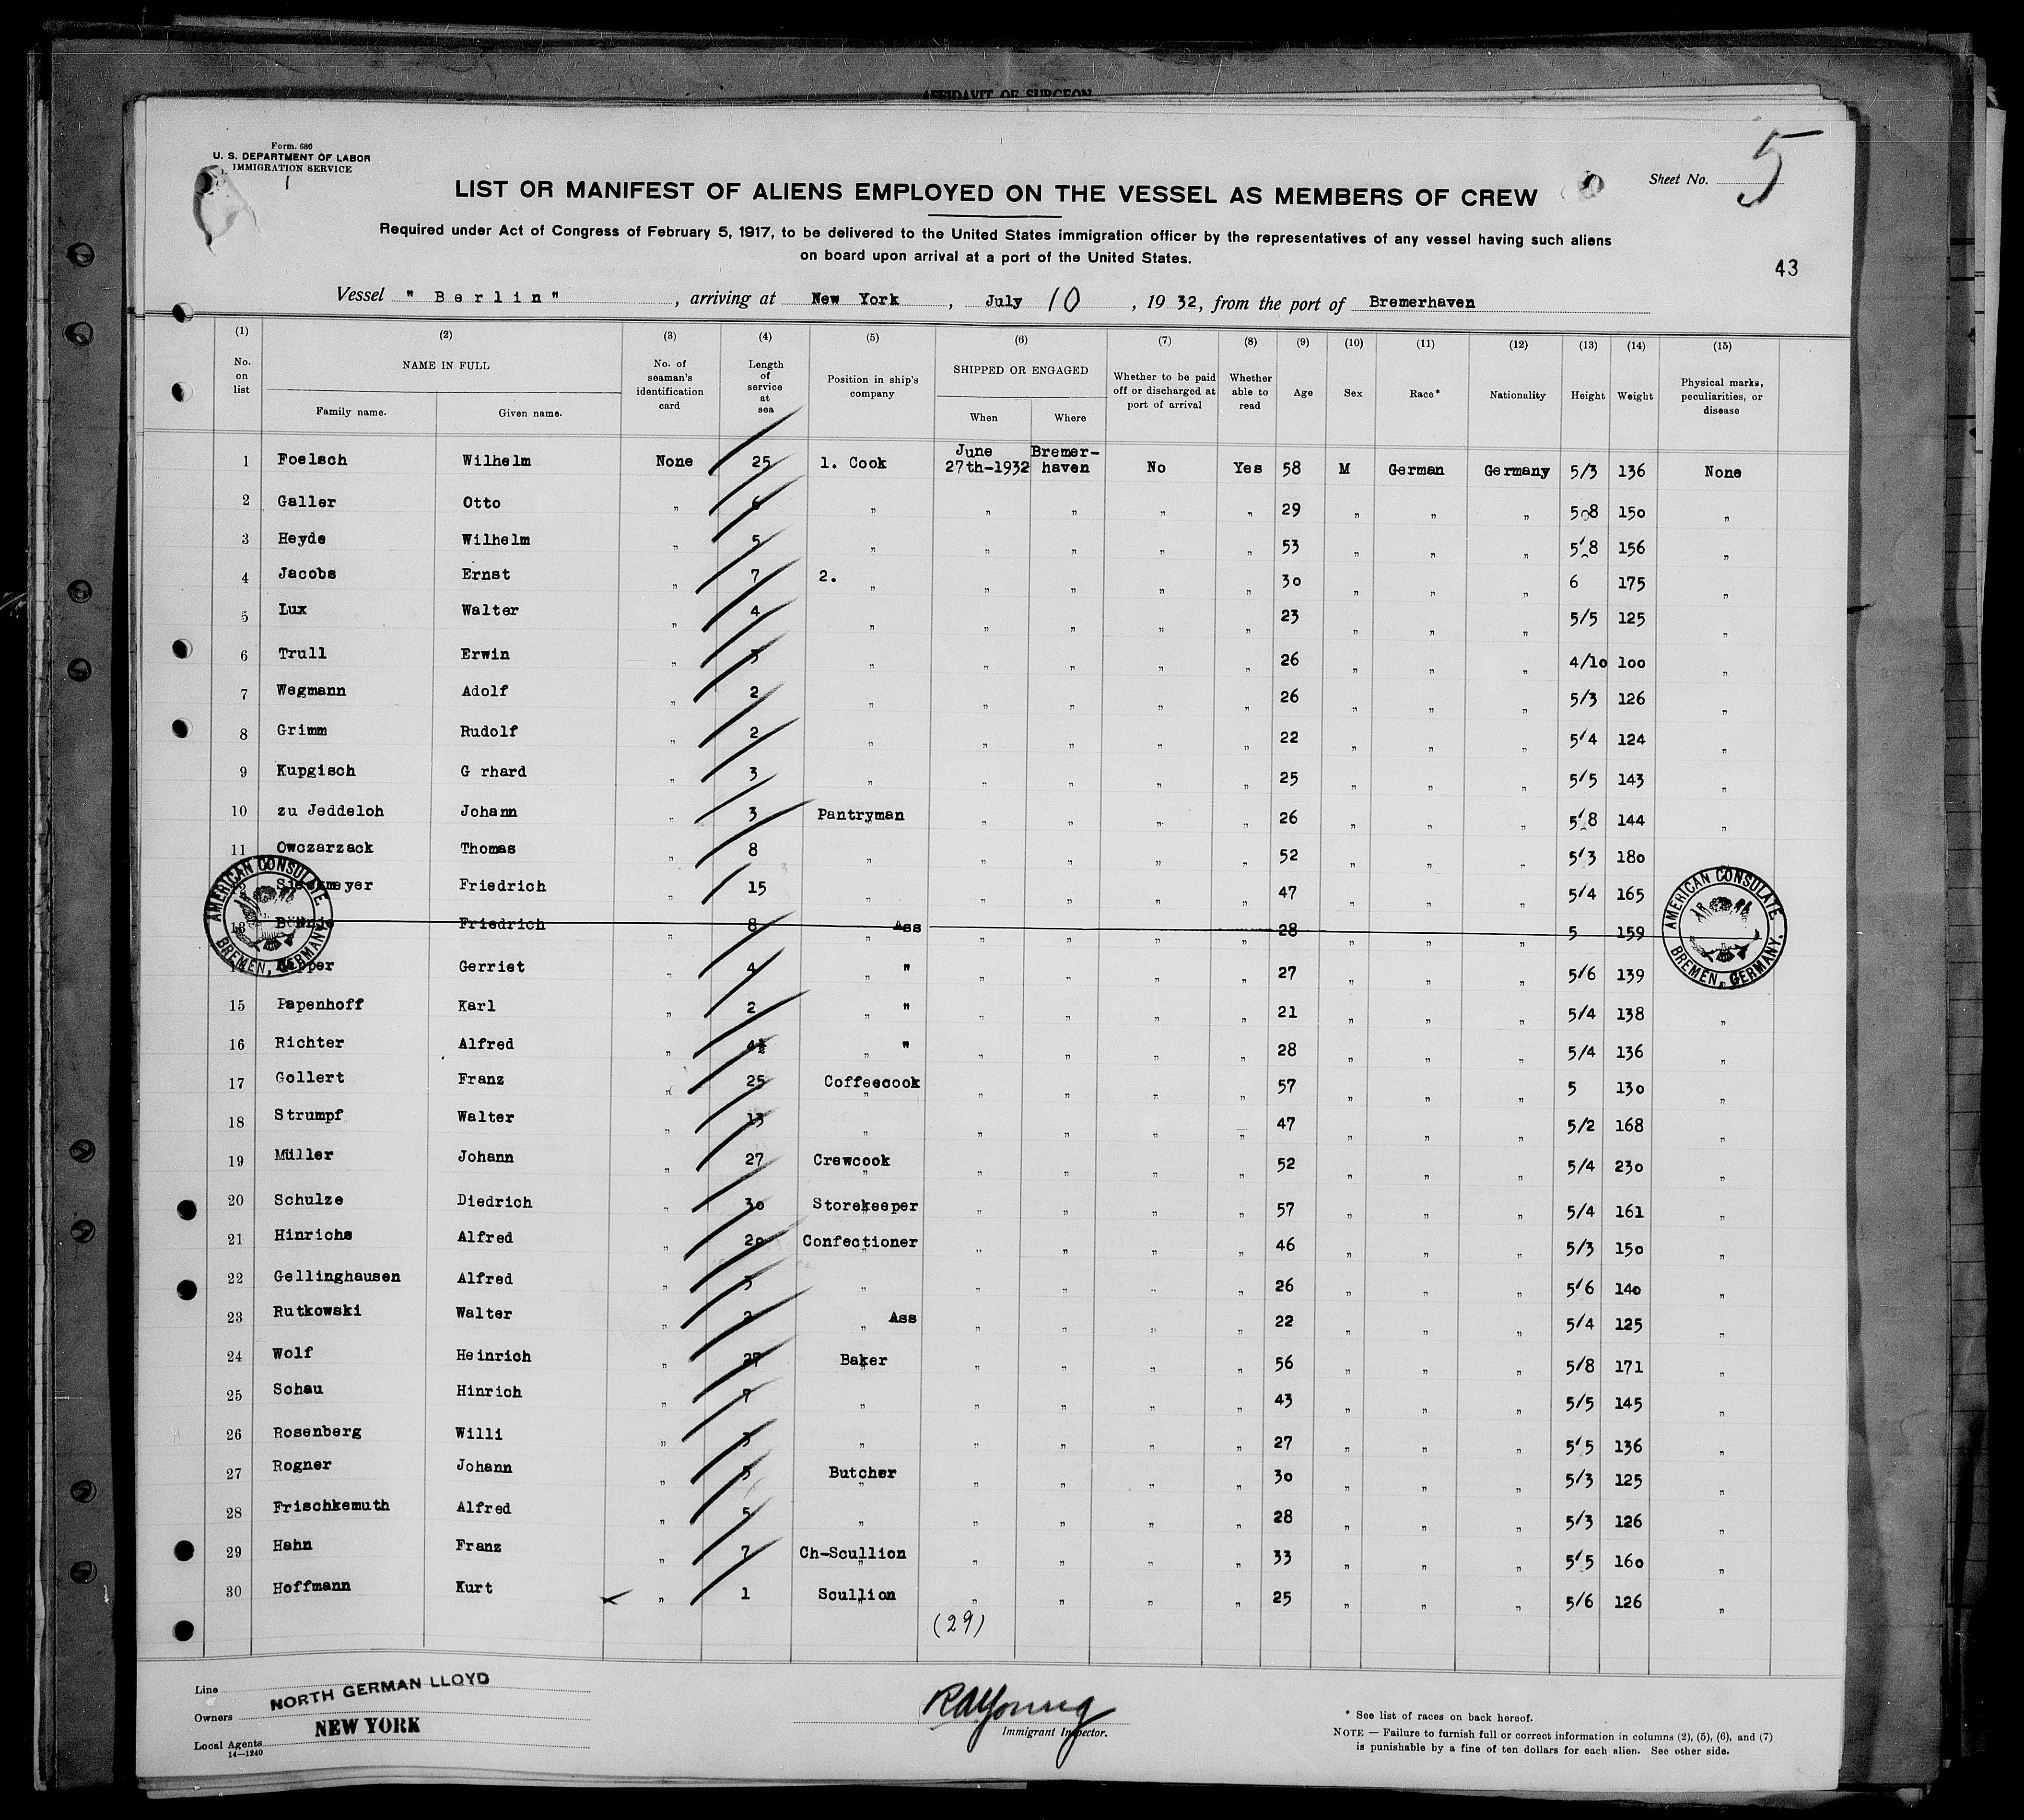 AFFIDAVIT OF SURGEON
Form. 680
U. S. DEPARTMENT OF LABOR
IMMIGRATION SERVICE
Sheet No. 5
LIST OR MANIFEST OF ALIENS EMPLOYED ON THE VESSEL AS MEMBERS OF CREW
Required under Act of Congress of February 5, 1917, to be delivered to the United States immigration officer by the representatives of any vessel having such aliens
on board upon arrival at a port of the United States.
43
Vessel " Berlin" , arriving at New York , July 10 , 1932, from the port of Bremerhaven
(1) (2) (3) (4) (5) (6) (7) (8) (9) (10) (11) (12) (13) (14) (15)
No. on list NAME IN FULL Family name. Given name. No. of seaman's identification card Length of service at sea Position in ship's company SHIPPED OR ENGAGED When Where Whether to be paid off or discharged at port of arrival Whether able to read Age Sex Race* Nationality Height Weight Physical marks, peculiarities, or disease
1 Foelsch Wilhelm None 25 1. Cook June 27th-1932 Bremer-haven No Yes 58 M German Germany 5/3 136 None
2 Galler Otto " 6 " " " " " 29 " " " 5 8 150 "
3 Heyde Wilhelm " 5 " " " " " 53 " " " 5'8 156 "
4 Jacobs Ernst " 7 2. " " " " " 30 " " " 6 175 "
5 Lux Walter " 4 " " " " " 23 " " " 5/5 125 "
6 Trull Erwin " 3 " " " " " 26 " " " 4/10 100 "
7 Wegmann Adolf " 2 " " " " " 26 " " " 5/3 126 "
8 Grimm Rudolf " 2 " " " " " 22 " " " 5'4 124 "
9 Kupgisch G rhard " 3 " " " " " 25 " " " 5/5 143 "
10 zu Jeddeloh Johann " 3 Pantryman " " " " 26 " " " 5'8 144 "
11 Owczarzack Thomas " 8 " " " " " 52 " " " 5'3 180
Friedrich " 15 " " " " " 47 " " " 5/4 165
13 Friedrich " 8 " Ass " " " " 28 " " " 5 159
Gerriet " 4 " " " " " " 27 " " " 5/6 139 "
15 Papenhoff Karl " 2 " " " " " " 21 " " " 5/4 138 "
16 Richter Alfred " 4½ " " " " " " 28 " " " 5/4 136 "
17 Gollert Franz " 25 Coffeecook " " " " 57 " " " 5 130 "
18 Strumpf Walter " 13 " " " " " 47 " " " 5/2 168 "
19 Müller Johann " 27 Crewcook " " " " 52 " " " 5/4 230 "
20 Schulze Diedrich " 30 Storekeeper " " " " 57 " " " 5/4 161 "
21 Hinrichs Alfred " 20 Confectioner " " " " 46 " " " 5/3 150 "
22 Gellinghausen Alfred " 3 " " " " " 26 " " " 5'6 140 "
23 Rutkowski Walter " 2 " Ass " " " " 22 " " " 5/4 125 "
24 Wolf Heinrich " 27 Baker " " " " 56 " " " 5/8 171 "
25 Schau Hinrich " 7 " " " " " 43 " " " 5/5 145 "
26 Rosenberg Willi " 3 " " " " " 27 " " " 5'5 136 "
27 Rogner Johann " 5 Butcher " " " " 30 " " " 5/3 125 "
28 Frischkemuth Alfred " 5 " " " " " 28 " " " 5/3 126 "
29 Hahn Franz " 7 Ch-Scullion " " " " 33 " " " 5'5 160 "
30 Hoffmann Kurt " 1 Scullion " " " " 25 " " " 5/6 126 "
(29)
AMERICAN CONSULATE
BREMEN, GERMANY
AMERICAN CONSULATE
BREMEN, GERMANY.
Line NORTH GERMAN LLOYD
Owners NEW YORK
Local Agents
14—1240
RAYoung
Immigrant Inspector.
* See list of races on back hereof.
NOTE — Failure to furnish full or correct information in columns (2), (5), (6), and (7)
is punishable by a fine of ten dollars for each alien. See other side.